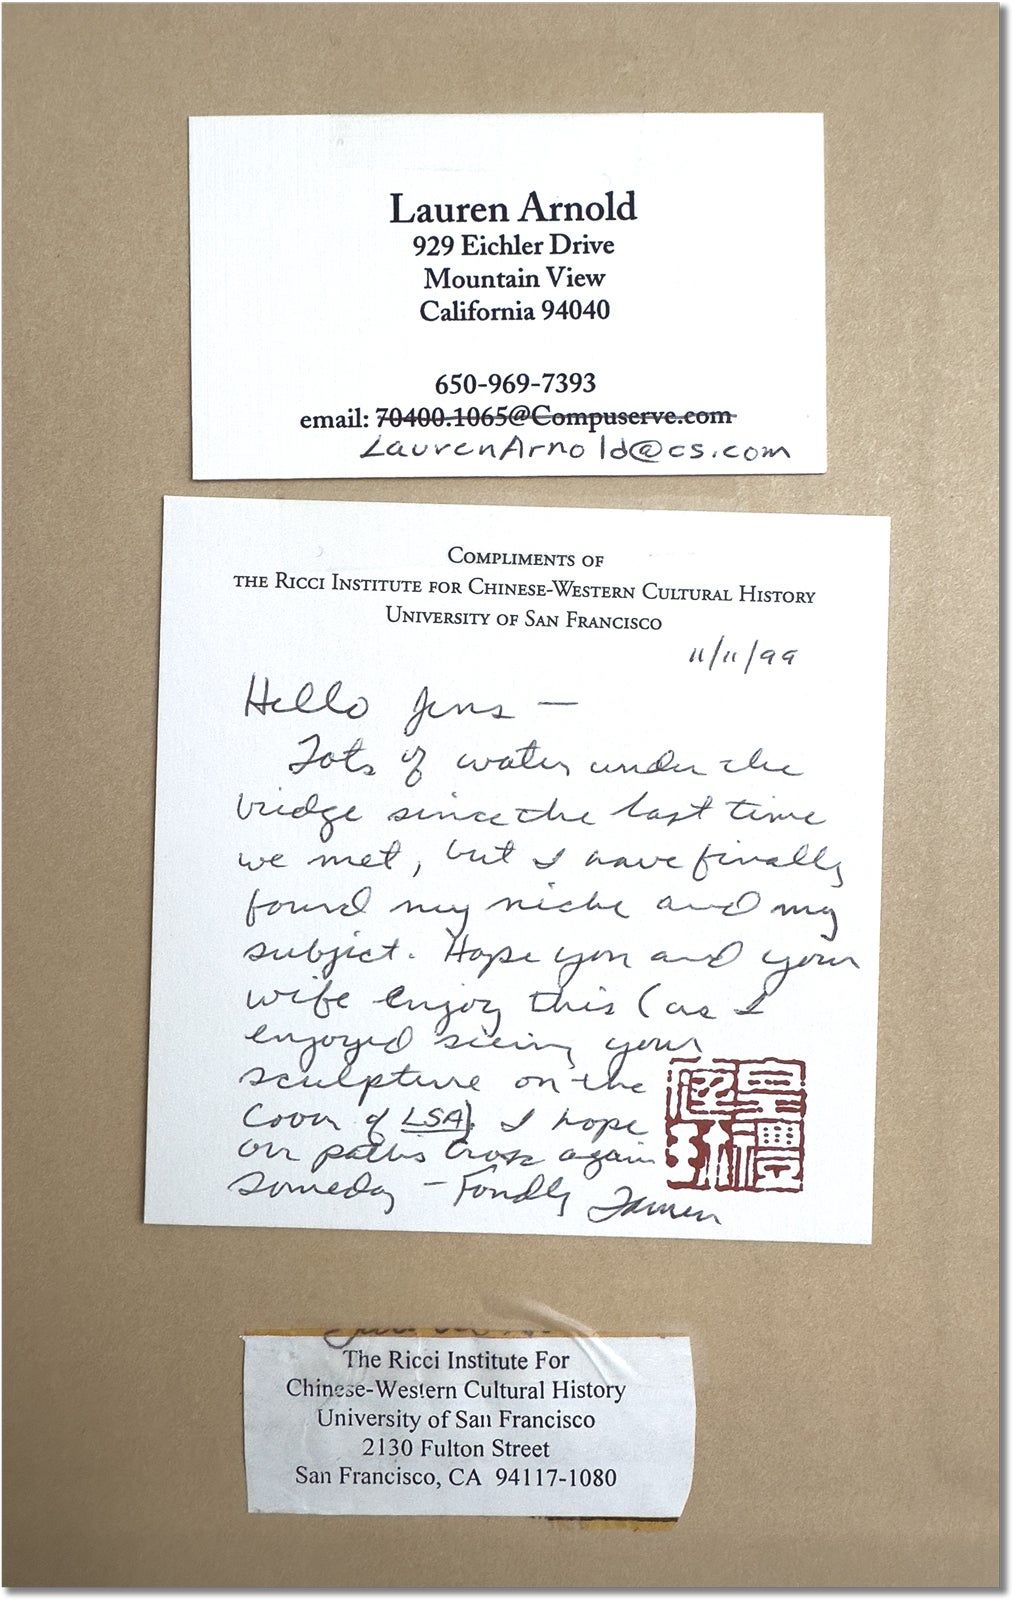 Lauren Arnold
929 Eichler Drive
Mountain View
California 94040
650-969-7393
email: 70400.1065@Compuserve.com
LaurenArnold@cs.com
COMPLIMENTS OF
THE RICCI INSTITUTE FOR CHINESE-WESTERN CULTURAL HISTORY
UNIVERSITY OF SAN FRANCISCO
11/11/99
Hello Jens —
Lots of water under the
bridge since the last time
we met, but I have finally
found my niche and my
subject. Hope you and your
wife enjoy this (as I
enjoyed seeing your
sculpture on the
cover of LSA). I hope
our paths cross again
someday – Fondly Lauren
The Ricci Institute For
Chinese-Western Cultural History
University of San Francisco
2130 Fulton Street
San Francisco, CA 94117-1080